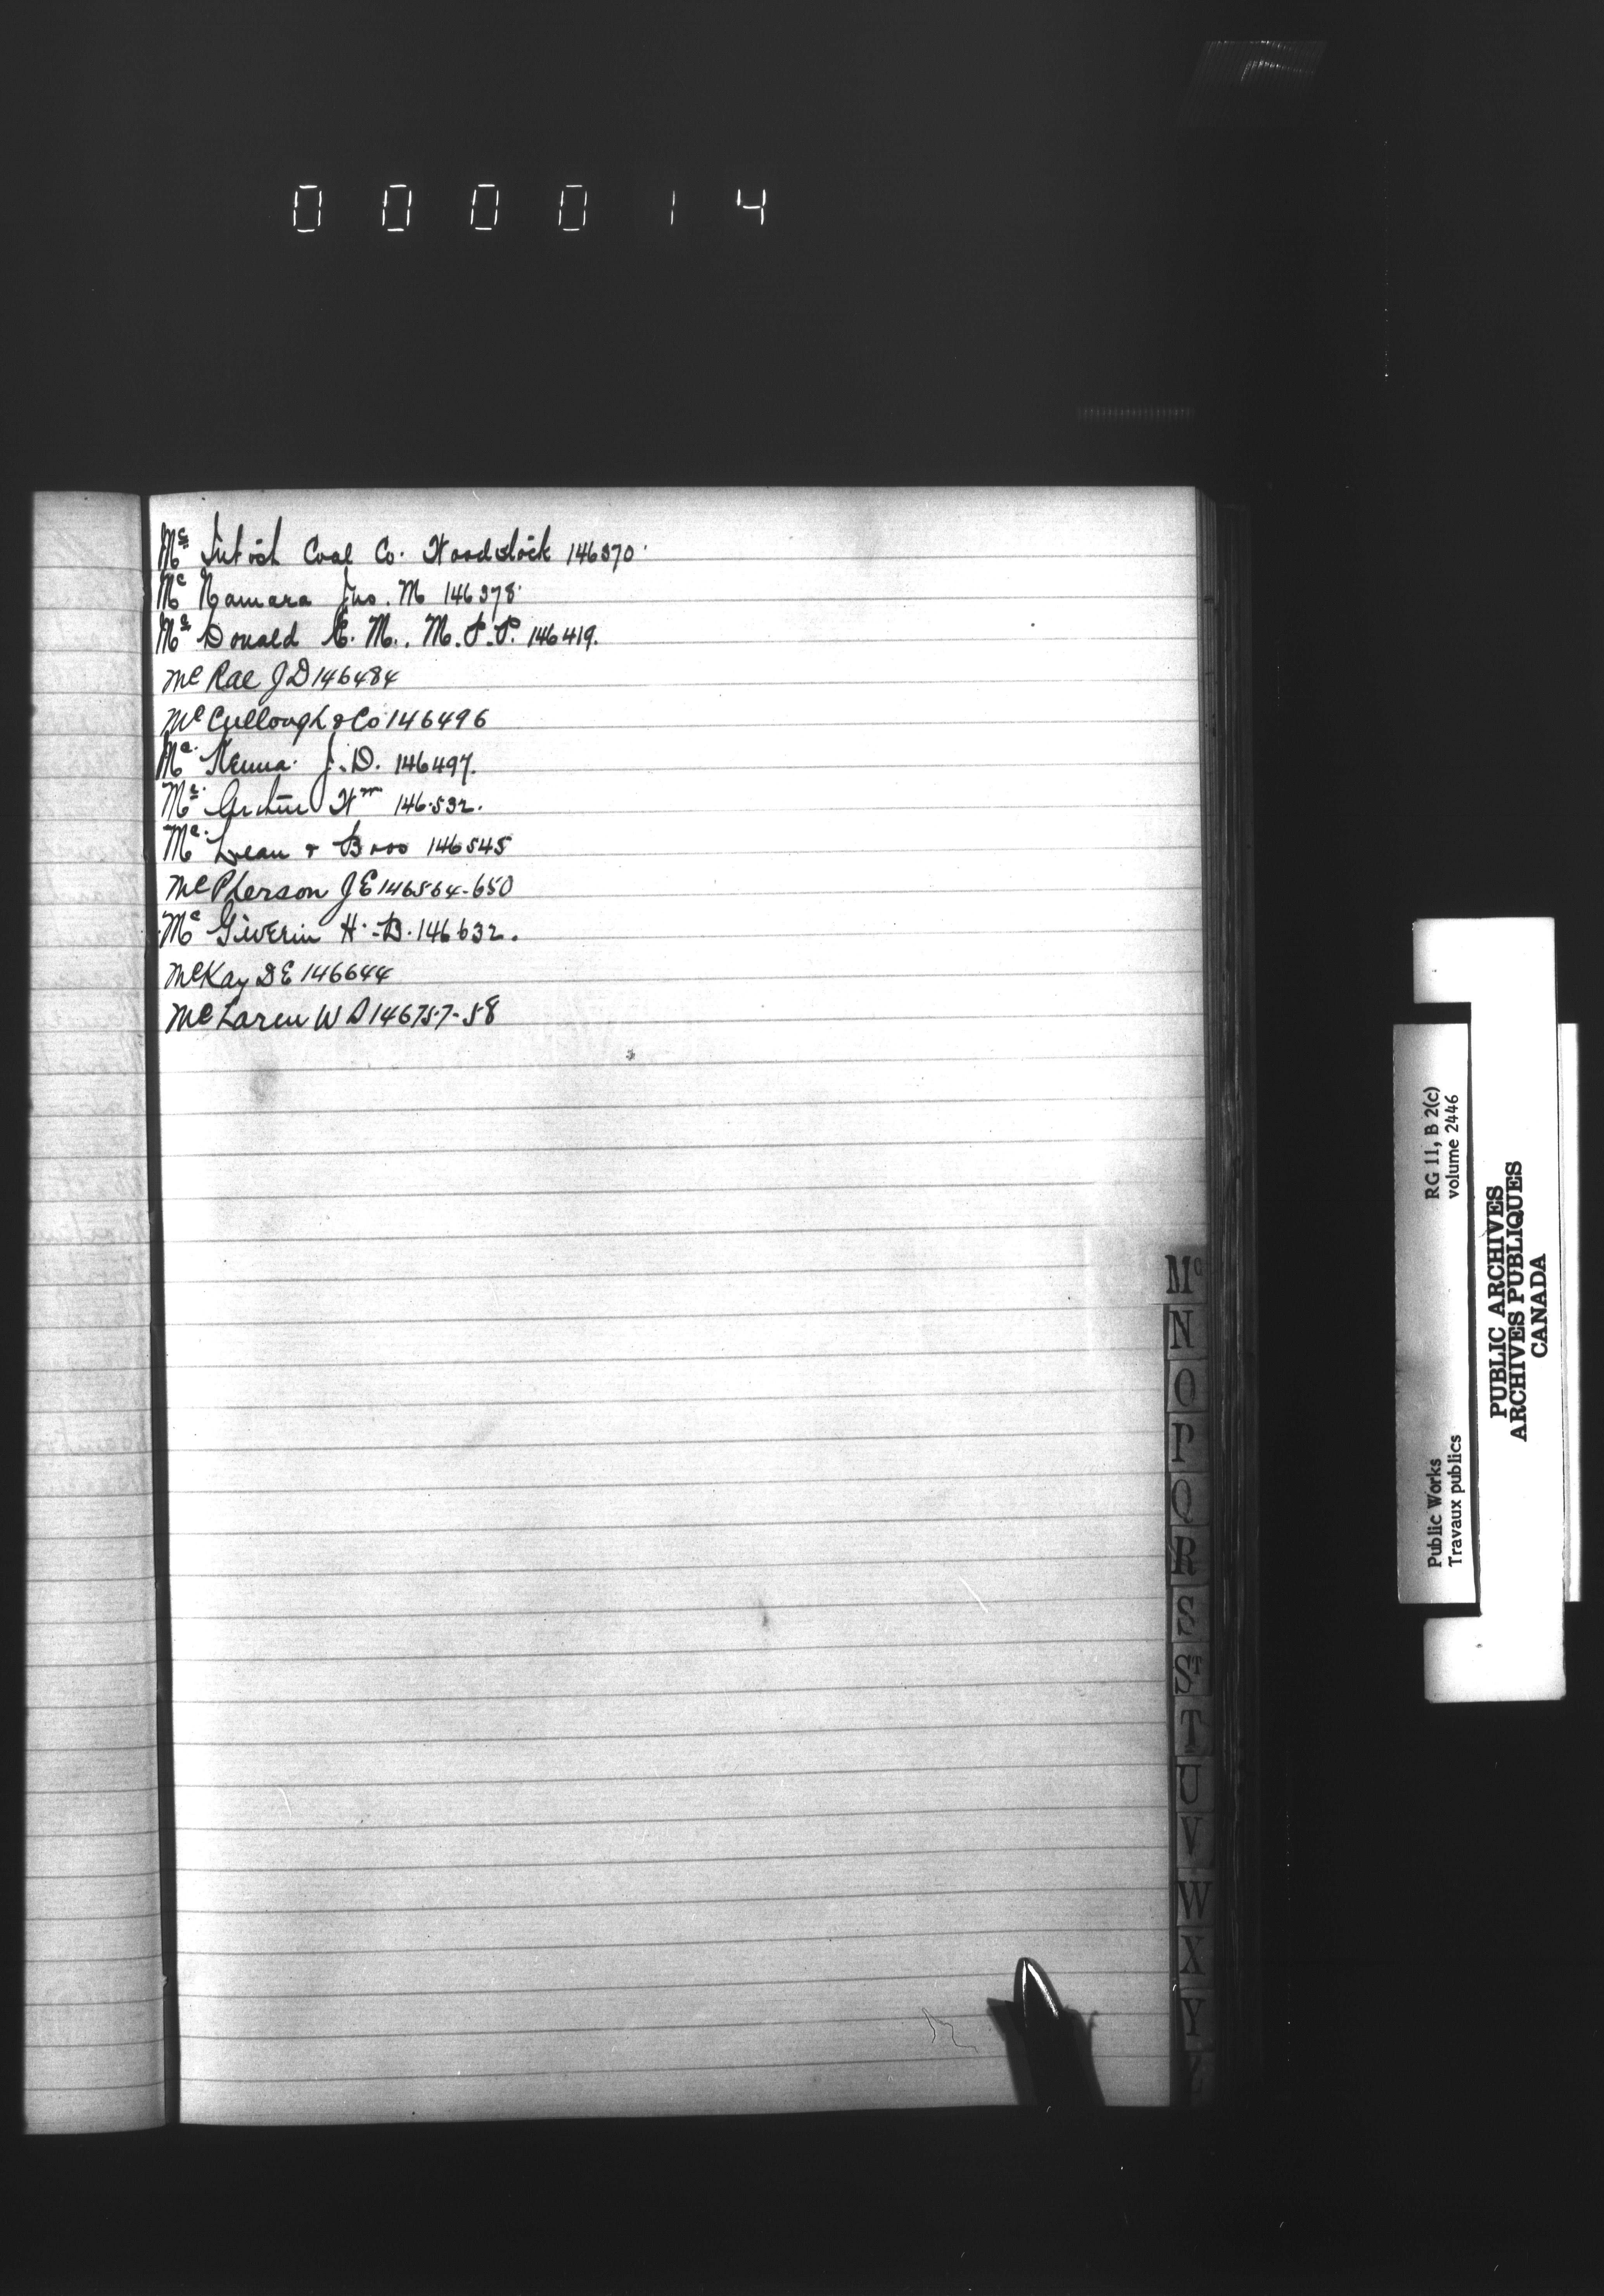 000014
Mc Intosh Coal Co. Woodstock 146370.
Mc Namara Jno. M 146378.
Mc Donald E. M., M.P.P. 146419.
Mc Rae J D 146484
Mc Cullough & Co 146496
Mc Kenna. J. D. 146497.
Mc Arthur Wm 146532.
Mc Lean & Bros 146545
Mc Pherson J E 146564-650
Mc Giverin H. B. 146632.
McKay D E 146644
Mc Laren W D 146757-58
Mc
N
O
P
Q
R
S
ST
T
U
V
W
X
Y
Public Works
Travaux publics
RG 11, B 2(c)
volume 2446
PUBLIC ARCHIVES
ARCHIVES PUBLIQUES
CANADA